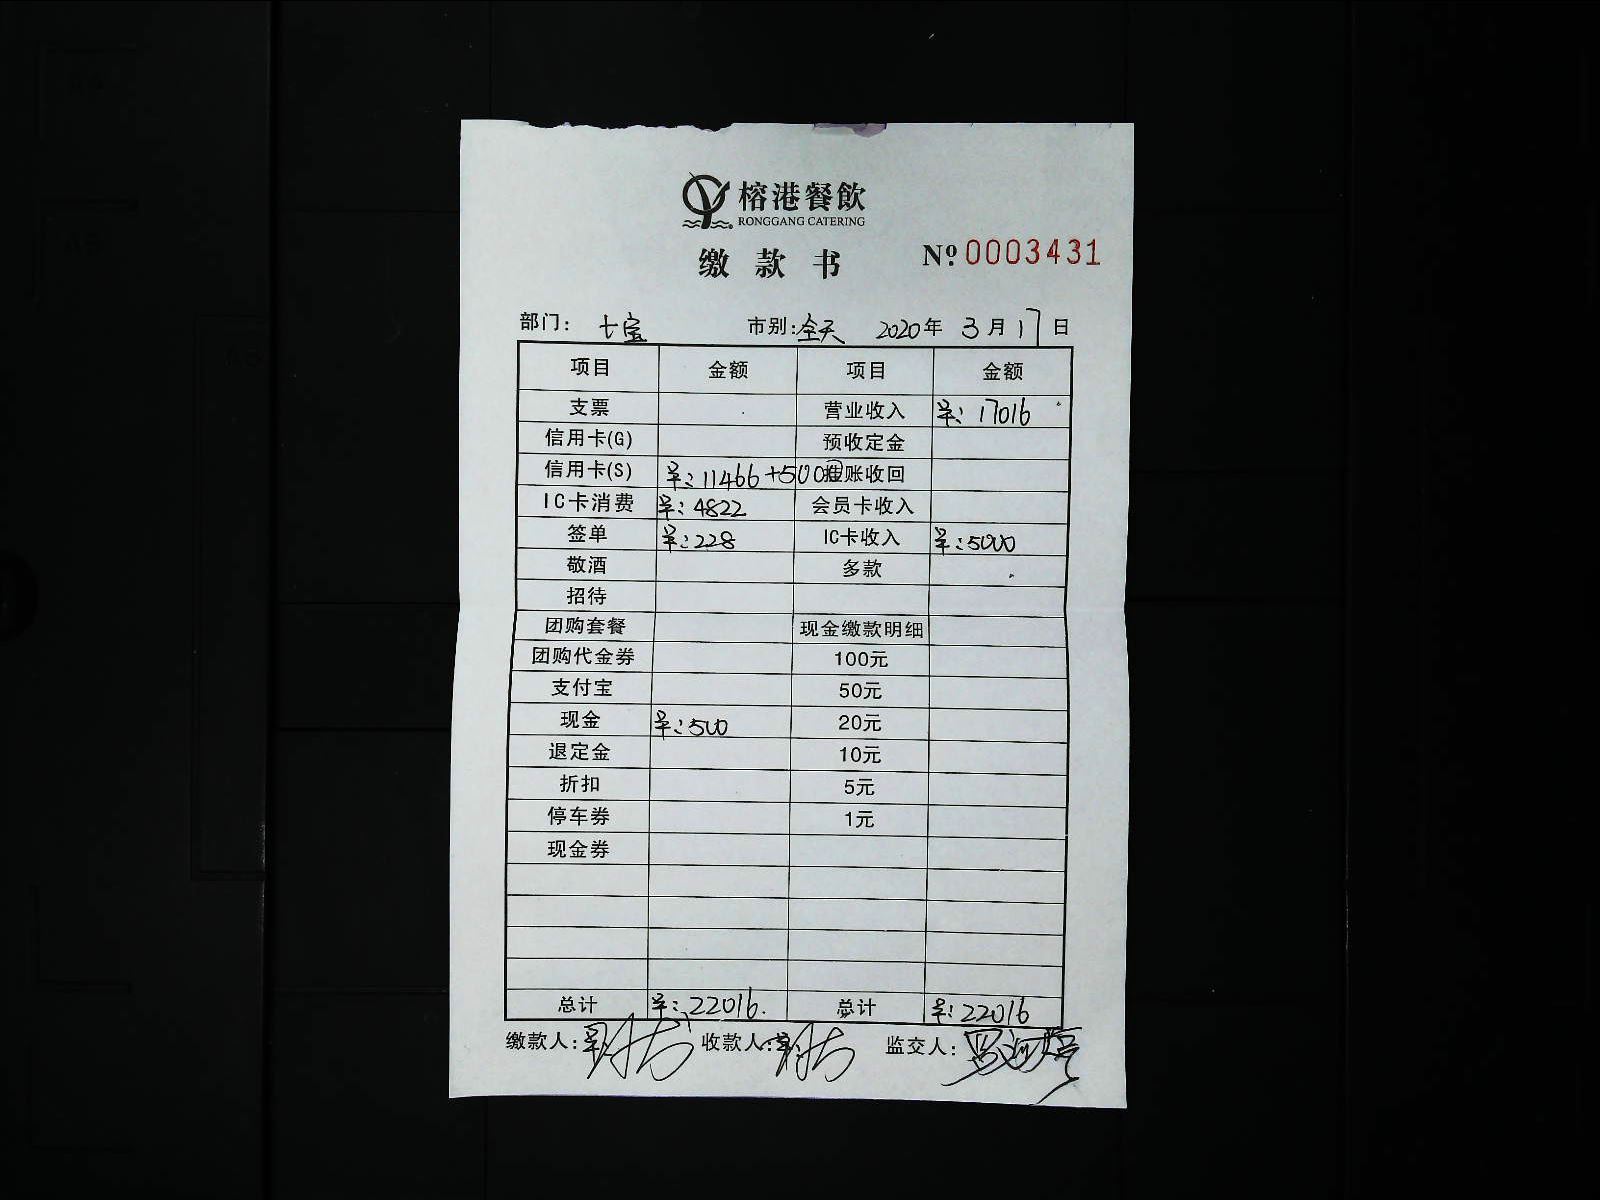 榕港餐飲
RONGGANG CATERING
缴款书
№ 0003431
部门: 七宝 市别: 全天 2020年 3月 17日
项目 金额 项目 金额
支票 营业收入 ¥: 17016
信用卡(G) 预收定金
信用卡(S) ¥: 11466+5000 账收回
IC卡消费 ¥: 4822 会员卡收入
签单 ¥: 228 IC卡收入 ¥: 5000
敬酒 多款
招待
团购套餐 现金缴款明细
团购代金券 100元
支付宝 50元
现金 ¥: 500 20元
退定金 10元
折扣 5元
停车券 1元
现金券
总计 ¥: 22016. 总计 ¥: 22016
缴款人: 收款人: 监交人: